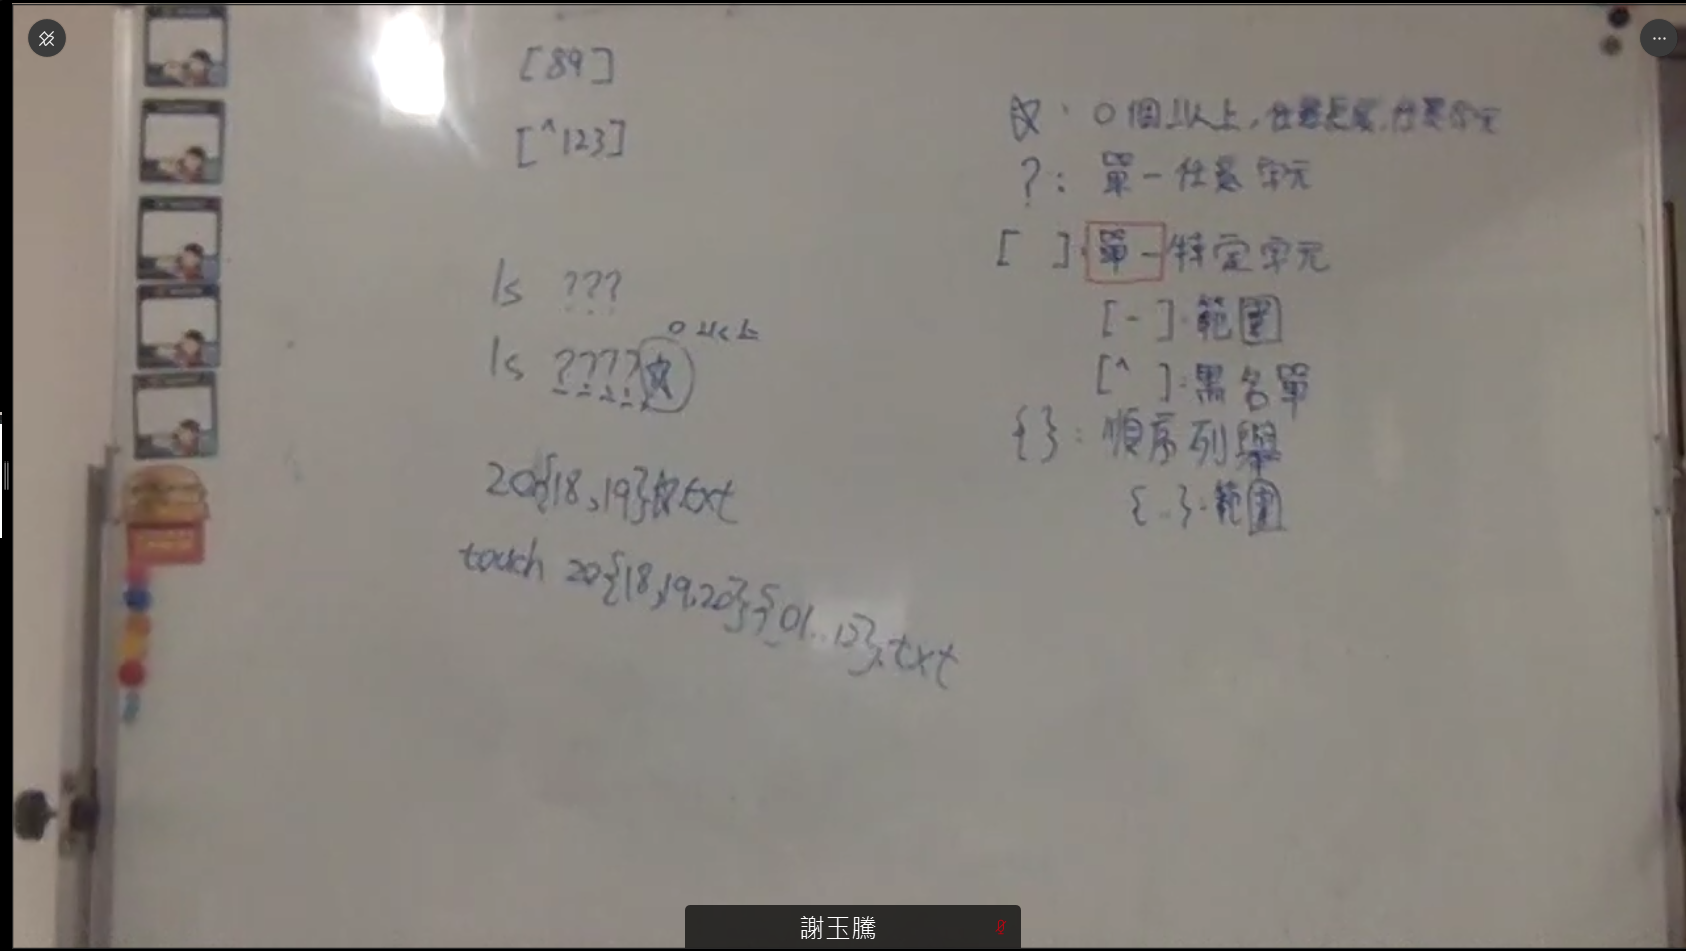 [89]
[^123]
ls ???
ls ????*
0以上
20{18,19}*.txt
touch 20{18,19,20}-{01..12}.txt
*: 0個以上,任意長度,任意字元
?: 單一任意字元
[ ]:單一特定字元
[-]:範圍
[^ ]:黑名單
{}:順序列舉
{..}:範圍
謝玉騰